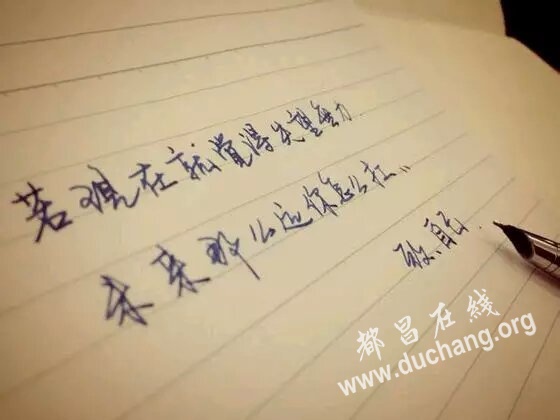 若现在就觉得失望無力
未来那么远你怎么扛..
都昌在綫
www.duchang.org